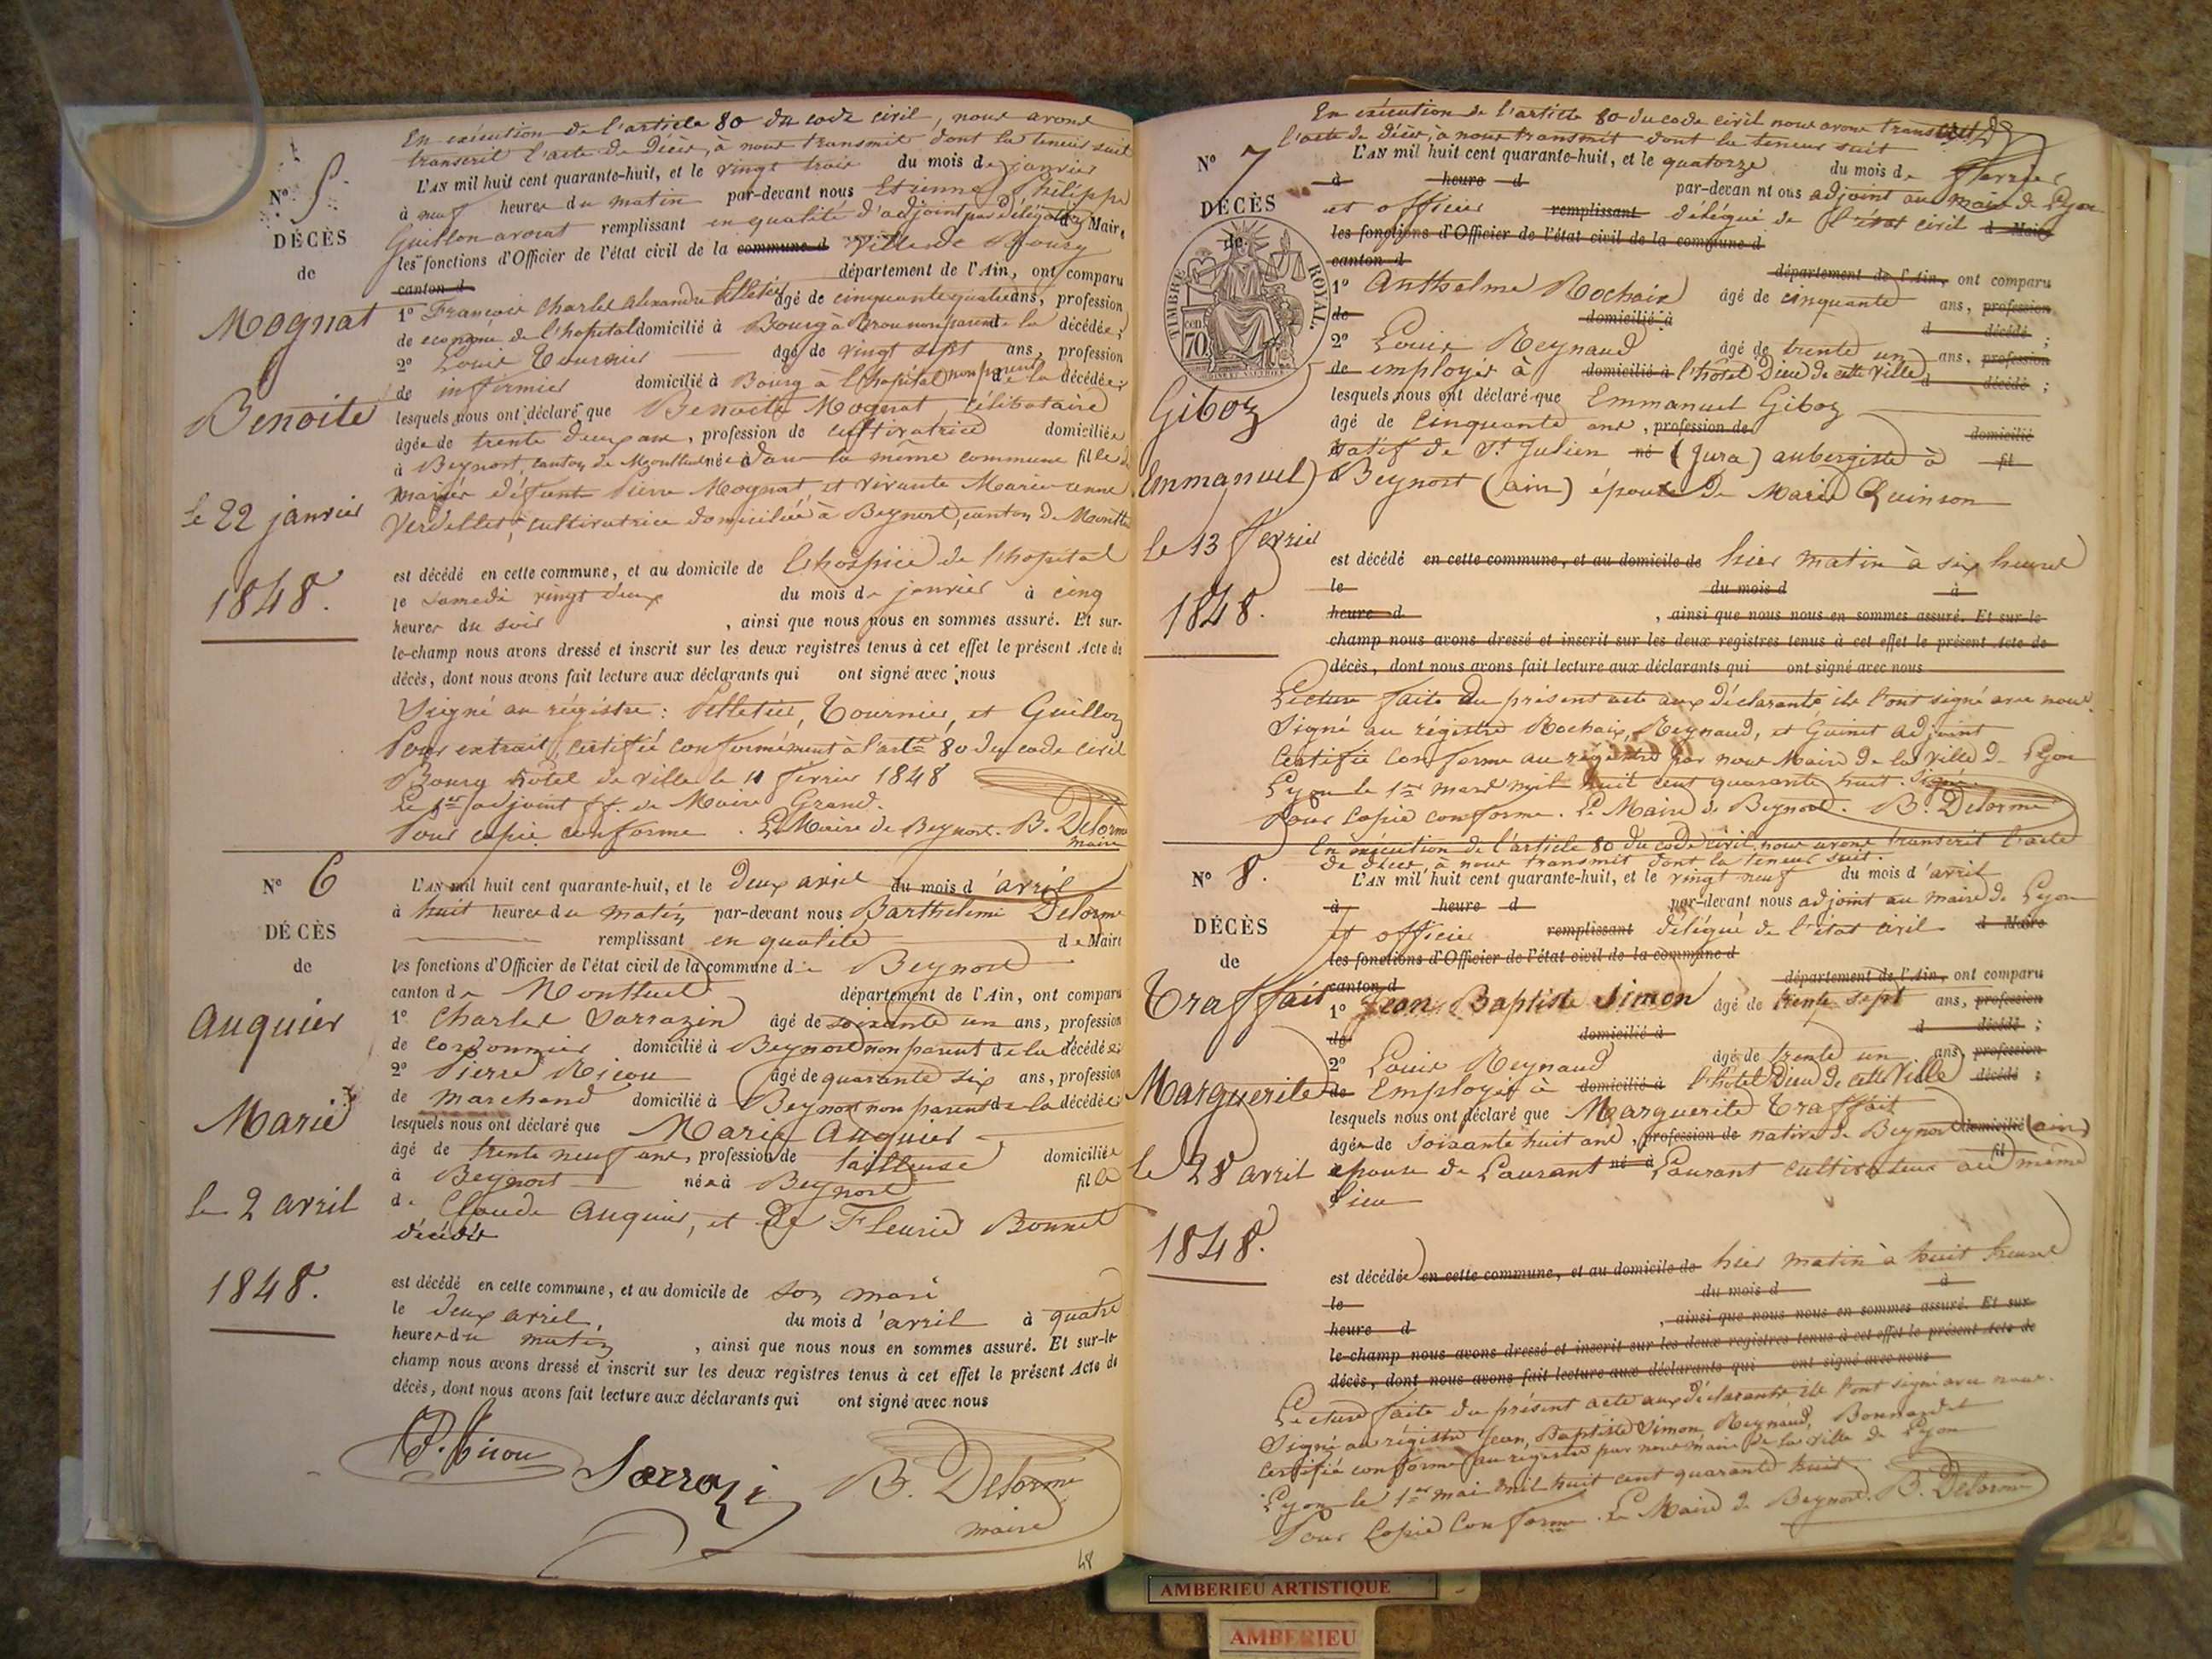 En exécution de l'article 80 du code civil, nous avons
transcrit l'acte de Décès, à nous transmit dont la teneur suit
N° 5
DÉCÈS
de
Mognat
Benoite
le 22 janvier
1848.
L'AN mil huit cent quarante-huit, et le vingt trois du mois de janvier
à neuf heures du matin par-devant nous Etienne Philippe
Guillon avocat remplissant en qualité d'adjoint par délégation du Maire
les fonctions d'Officier de l'état civil de la commune d ville de Bourg
canton d département de l'Ain, ont comparu
1° François Charles Alexandre Pelletier âgé de cinquante quatre ans, profession
de econome de l'hopital domicilié à Bourg à Brou non parent de la décédée;
2° Louis Tournier âgé de vingt sept ans, profession
de infirmier domicilié à Bourg à l'hopital non parent de la décédée;
lesquels nous ont déclaré que Benoite Mognat, célibataire
âgée de trente deux ans, profession de cultivatrice domiciliée
à Beynost, canton de Montluel née à dans la même commune fille de
mariés défunt Pierre Mognat, et vivante Marie anne
Verdellet, cultivatrice domiciliée à Beynost, canton de Montluel
est décédé en cette commune, et au domicile de l'hospice de l'hopital
le samedi vingt deux du mois de janvier à cinq
heures du soir, ainsi que nous nous en sommes assuré. Et sur-
le-champ nous avons dressé et inscrit sur les deux registres tenus à cet effet le présent Acte de
décès, dont nous avons fait lecture aux déclarants qui ont signé avec nous
Signé au régistre: Pelletier, Tournier, et Guillon
Pour extrait, certifié conformément à l'art. 80 du code civil
Bourg hôtel de ville le 11 février 1848
Le 1er adjoint ff. de Maire Grand.
Pour copie conforme. Le Maire de Beynost. B. Delorme
maire
N° 6
DÉCÈS
de
Auquier
Marie
le 2 avril
1848.
L'AN mil huit cent quarante-huit, et le deux avril du mois d'avril
à huit heures du matin par-devant nous Barthelemi Delorme
remplissant en qualité de Maire
les fonctions d'Officier de l'état civil de la commune de Beynost
canton de Montluel département de l'Ain, ont comparu
1° Charles Sarrazin âgé de soixante un ans, profession
de cordonnier domicilié à Beynost non parent de la décédée;
2° Pierre Ricou âgé de quarante six ans, profession
de marchand domicilié à Beynost non parent de la décédée;
lesquels nous ont déclaré que Marie Auquier
âgé de trente neuf ans, profession de tailleuse domiciliée
à Beynost née à Beynost fille
de Claude Auquier, et de Fleurie Bonnet
décédés
est décédé en cette commune, et au domicile de son mari
le deux avril, du mois d'avril à quatre
heures du matin, ainsi que nous nous en sommes assuré. Et sur-le-
champ nous avons dressé et inscrit sur les deux registres tenus à cet effet le présent Acte de
décès, dont nous avons fait lecture aux déclarants qui ont signé avec nous
P. Ricou Sarrazi B. Delorme
maire
48
En exécution de l'article 80 du code civil nous avons transcrit
l'acte de décès, à nous transmit dont la teneur suit
N° 7
DÉCÈS
de
TIMBRE ROYAL.
cen 70
Giboz
Emmanuel
le 13 février
1848.
L'AN mil huit cent quarante-huit, et le quatorze du mois de février
à heure d par-devan nt ous adjoint au maire de Lyon
et officier remplissant délégué de l'état civil d Maire
les fonctions d'Officier de l'état civil de la commune d
canton d département de l'Ain, ont comparu
1° Anthelme Rochaix âgé de cinquante ans, profession
de domicilié à d décédé;
2° Louis Reynaud âgé de trente un ans, profession
de employés à domicilié à l'hôtel Dieu de cette ville d décédé;
lesquels nous ont déclaré que Emmanuel Giboz
âgé de cinquante ans, profession de domicilié
natif de St Julien né (Jura) aubergiste à fil
Beynost (ain) époux de Marie Quinson
est décédé en cette commune, et au domicile de hier matin à six heures
le du mois d à
heure d, ainsi que nous nous en sommes assuré. Et sur-le-
champ nous avons dressé et inscrit sur les deux registres tenus à cet effet le présent Acte de
décès, dont nous avons fait lecture aux déclarants qui ont signé avec nous
Lecture faite du présent acte aux déclarants ils l'ont signé avec nous.
Signé au régistre Rochaix, Reynaud, et Guinet adjoint
Certifié conforme au régistre par nous Maire de la ville de Lyon
Lyon le 1er mars mil huit cent quarante huit. Signé
Pour copie conforme. Le Maire de Beynost. B. Delorme
En exécution de l'article 80 du code civil, nous avons transcrit l'acte
de décès, à nous transmit dont la teneur suit.
N° 8.
DÉCÈS
de
Traffait
Marguerite
le 28 avril
1848.
L'AN mil huit cent quarante-huit, et le vingt neuf du mois d'avril
à heure d par-devant nous adjoint au maire de Lyon
et officier remplissant délégué de l'état civil d Maire
les fonctions d'Officier de l'état civil de la commune d
canton d département de l'Ain, ont comparu
1° Jean Baptiste Simon âgé de trente sept ans, profession
de domicilié à d décédé;
2° Louis Reynaud âgé de trente un ans, profession
de Employés à domicilié à l'hôtel Dieu de cette Ville décédé;
lesquels nous ont déclaré que Marguerite Traffait
âgée de soixante huit ans, profession de native de Beynost domicilié (ain)
épouse de Laurant né à Laurant cultivateur au fil même
lieu
est décédée en cette commune, et au domicile de hier matin à huit heures
le du mois d à
heure d, ainsi que nous nous en sommes assuré. Et sur-
le-champ nous avons dressé et inscrit sur les deux registres tenus à cet effet le présent Acte de
décès, dont nous avons fait lecture aux déclarants qui ont signé avec nous
Lecture faite du présent acte aux déclarants ils l'ont signé avec nous.
Signé au régistre Jean, Baptiste Simon, Reynaud, Bonnardet
Certifié conforme au régistre par nous maire de la ville de Lyon
Lyon le 1er mai mil huit cent quarante huit
Pour Copie Conforme. Le Maire de Beynost. B. Delorme
AMBERIEU ARTISTIQUE
AMBERIEU